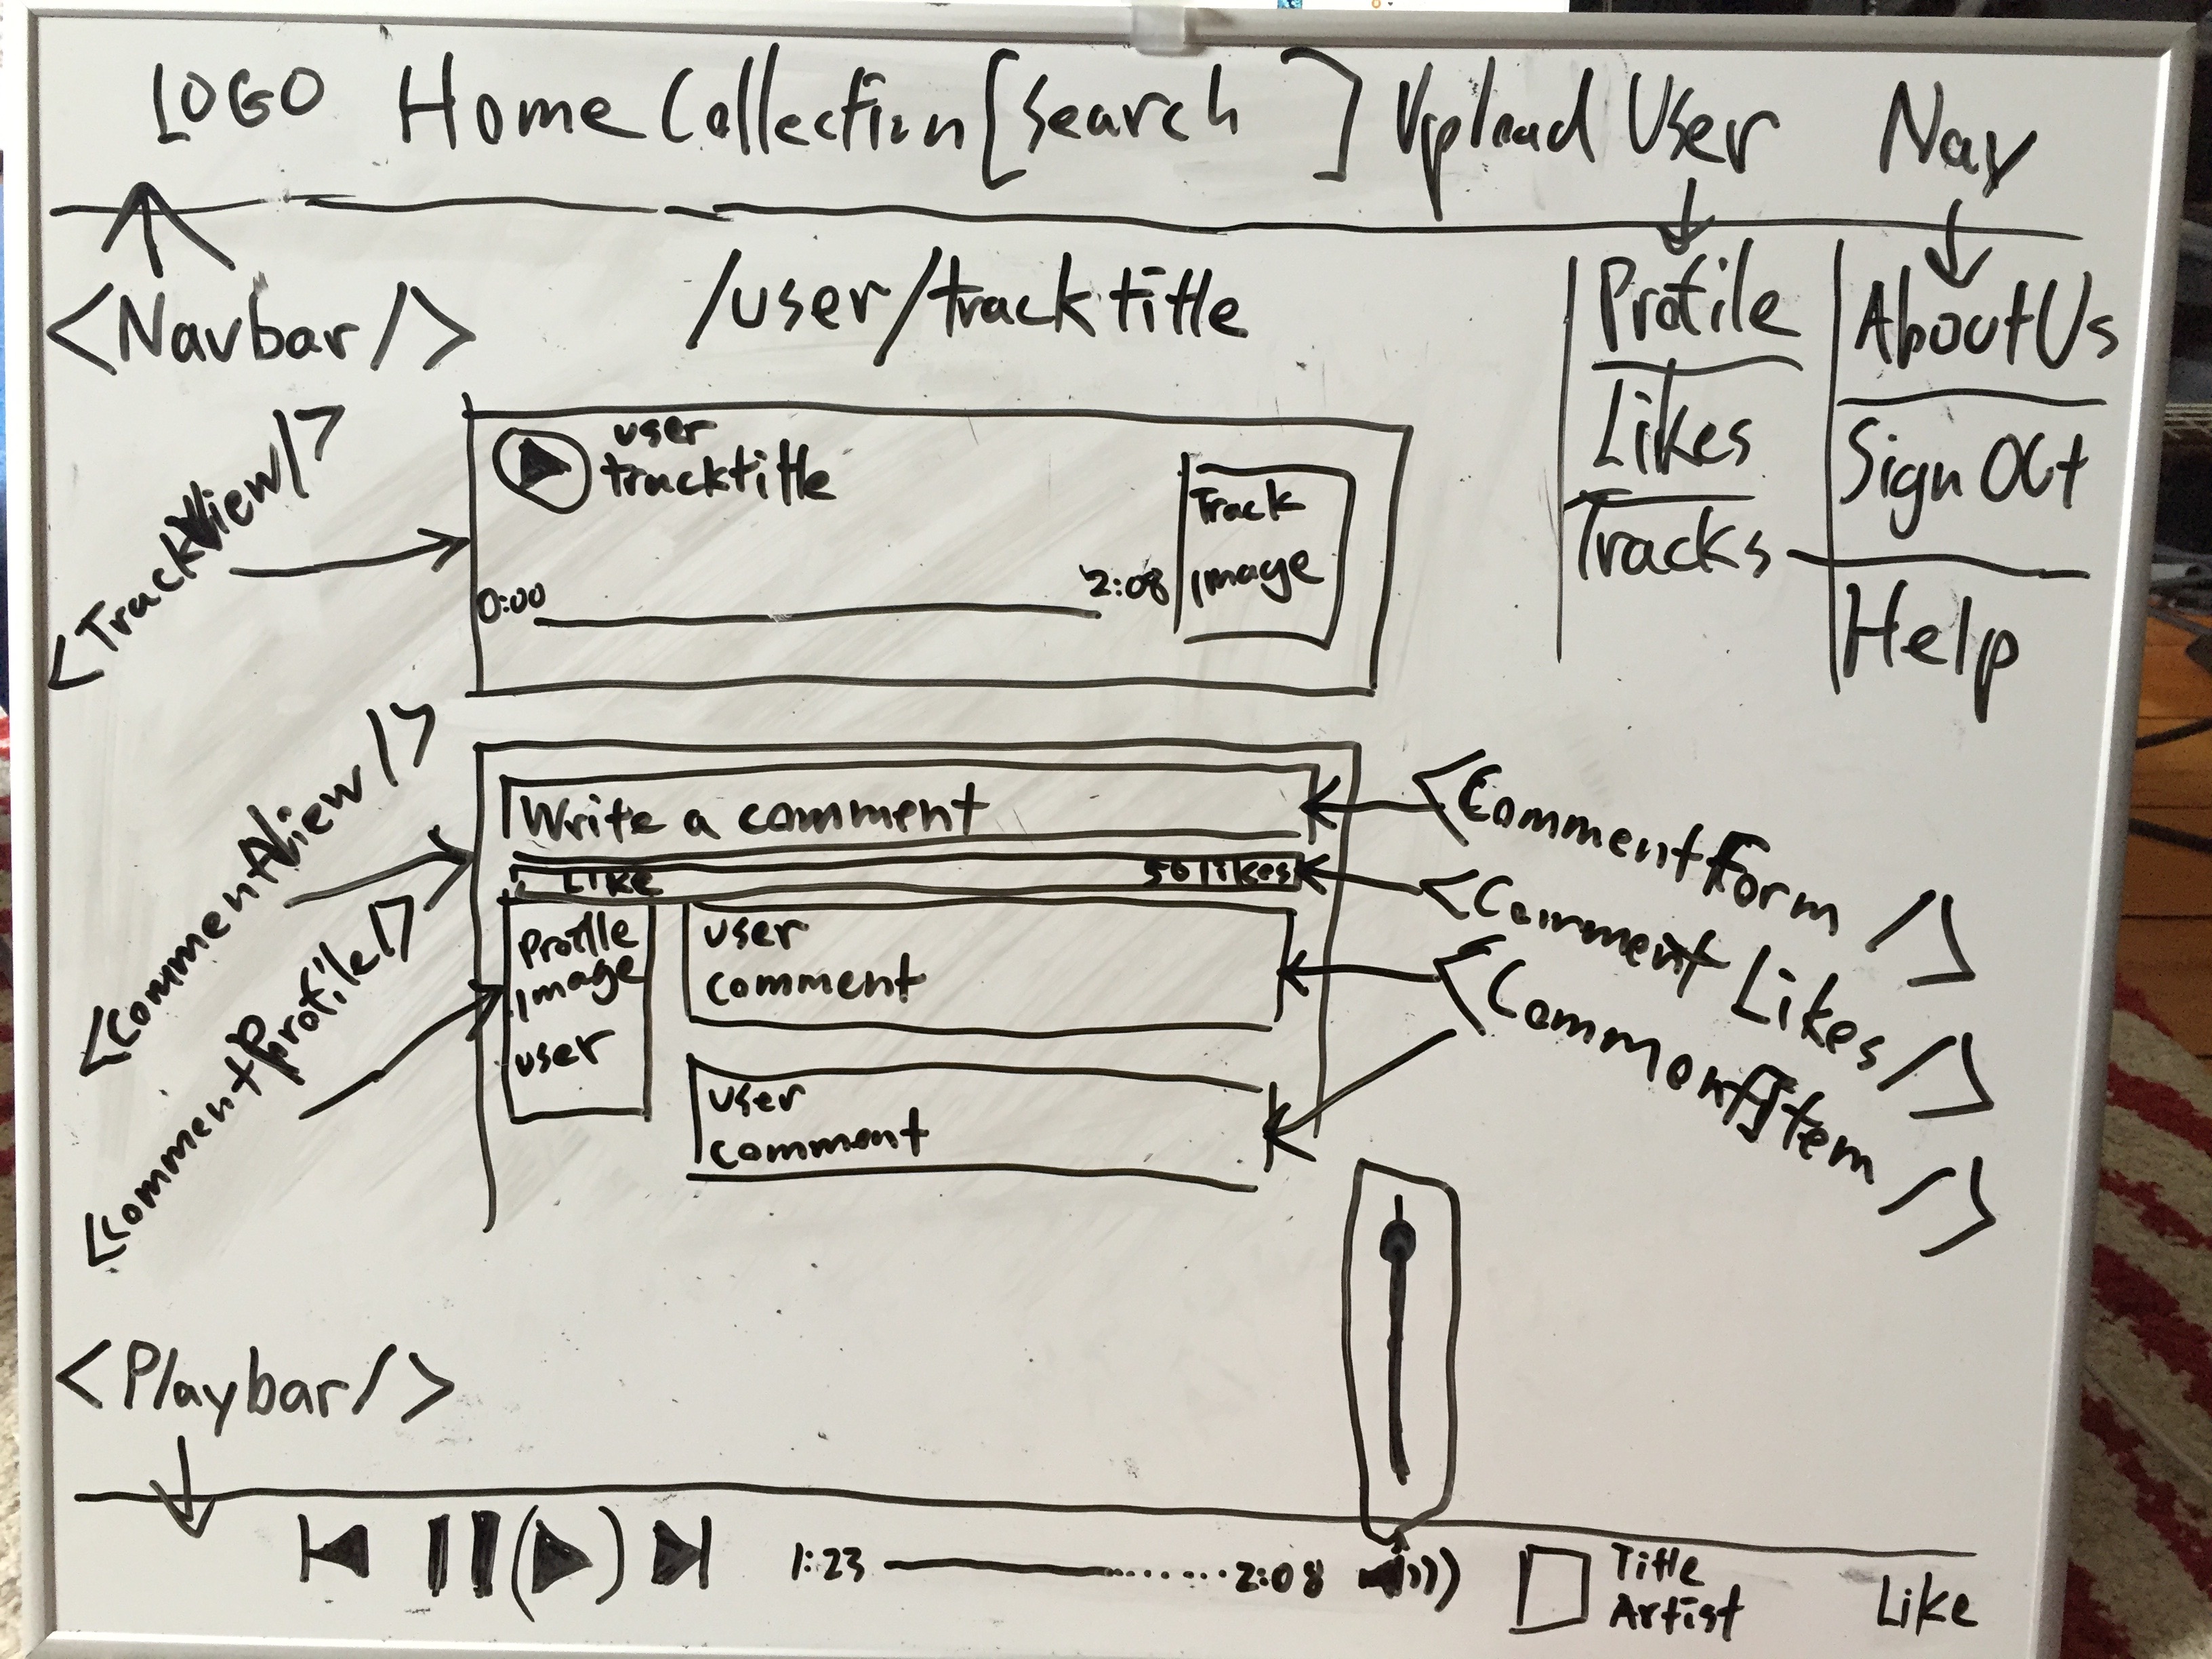 LOGO Home Collection [Search ] Upload User Nav
<Navbar/>
/user/tracktitle
Profile
Likes
Tracks
About Us
Sign Out
Help
<TrackView/>
user
tracktitle
0:00
2:08
Track
image
<CommentView/>
<CommentProfile/>
Write a comment
LIKE 50 likes
Profile
image
user
user
comment
user
comment
<CommentForm />
<Comment Likes />
<CommentItem />
<Playbar/>
1:23 2:08
Title
Artist
Like